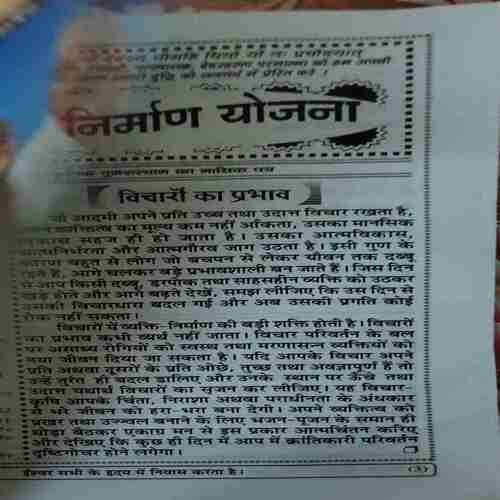 भर्गो देवस्य धीमहि धियो यो नः प्रचोदयात्
देवस्वरूप परमात्मा को हम अपनी
बुद्धि को सन्मार्ग में प्रेरित करे ।
निर्माण योजना
का मासिक पत्र
विचारों का प्रभाव
जो आदमी अपने प्रति उच्च तथा उदात्त विचार रखता है,
अपने व्यक्तित्व का मूल्य कम नहीं आँकता, उसका मानसिक
विकास सहज ही हो जाता है। उसका आत्मविकास,
आत्मनिर्भरता और आत्मगौरव जाग उठता है। इसी गुण के
कारण बहुत से लोग जो बचपन से लेकर यौवन तक दब्बू
रहते हैं, आगे चलकर बड़े प्रभावशाली बन जाते हैं। जिस दिन
से आप किसी दब्बू, डरपोक तथा साहसहीन व्यक्ति को उठकर
खड़े होते और आगे बढ़ते देखें, समझ लीजिए कि उस दिन से
उसकी विचारधारा बदल गई और अब उसकी प्रगति कोई
रोक नहीं सकता।
विचारों में व्यक्ति-निर्माण की बड़ी शक्ति होती है। विचारों
का प्रभाव कभी व्यर्थ नहीं जाता। विचार परिवर्तन के बल
पर असाध्य रोगियों को स्वस्थ तथा मरणासन्न व्यक्तियों को
नया जीवन दिया जा सकता है। यदि आपके विचार अपने
प्रति अथवा दूसरों के प्रति ओछे, तुच्छ तथा अवज्ञापूर्ण हैं तो
उन्हें तुरंत ही बदल डालिए और उनके स्थान पर ऊँचे तथा
उदात्त यथार्थ विचारों का सृजन कर लीजिए। यह विचार-
कृषि आपके चिंता, निराशा अथवा पराधीनता के अंधकार
से भरे जीवन को हरा-भरा बना देगी। अपने व्यक्तित्व को
प्रखर तथा उज्ज्वल बनाने के लिए भजन-पूजन के समान ही
थोड़ा बैठकर एकाग्र मन से इस प्रकार आत्मचिंतन करिए
और देखिए कि कुछ ही दिन में आप में क्रांतिकारी परिवर्तन
दृष्टिगोचर होने लगेगा।
ईश्वर सभी के हृदय में निवास करता है। (३)